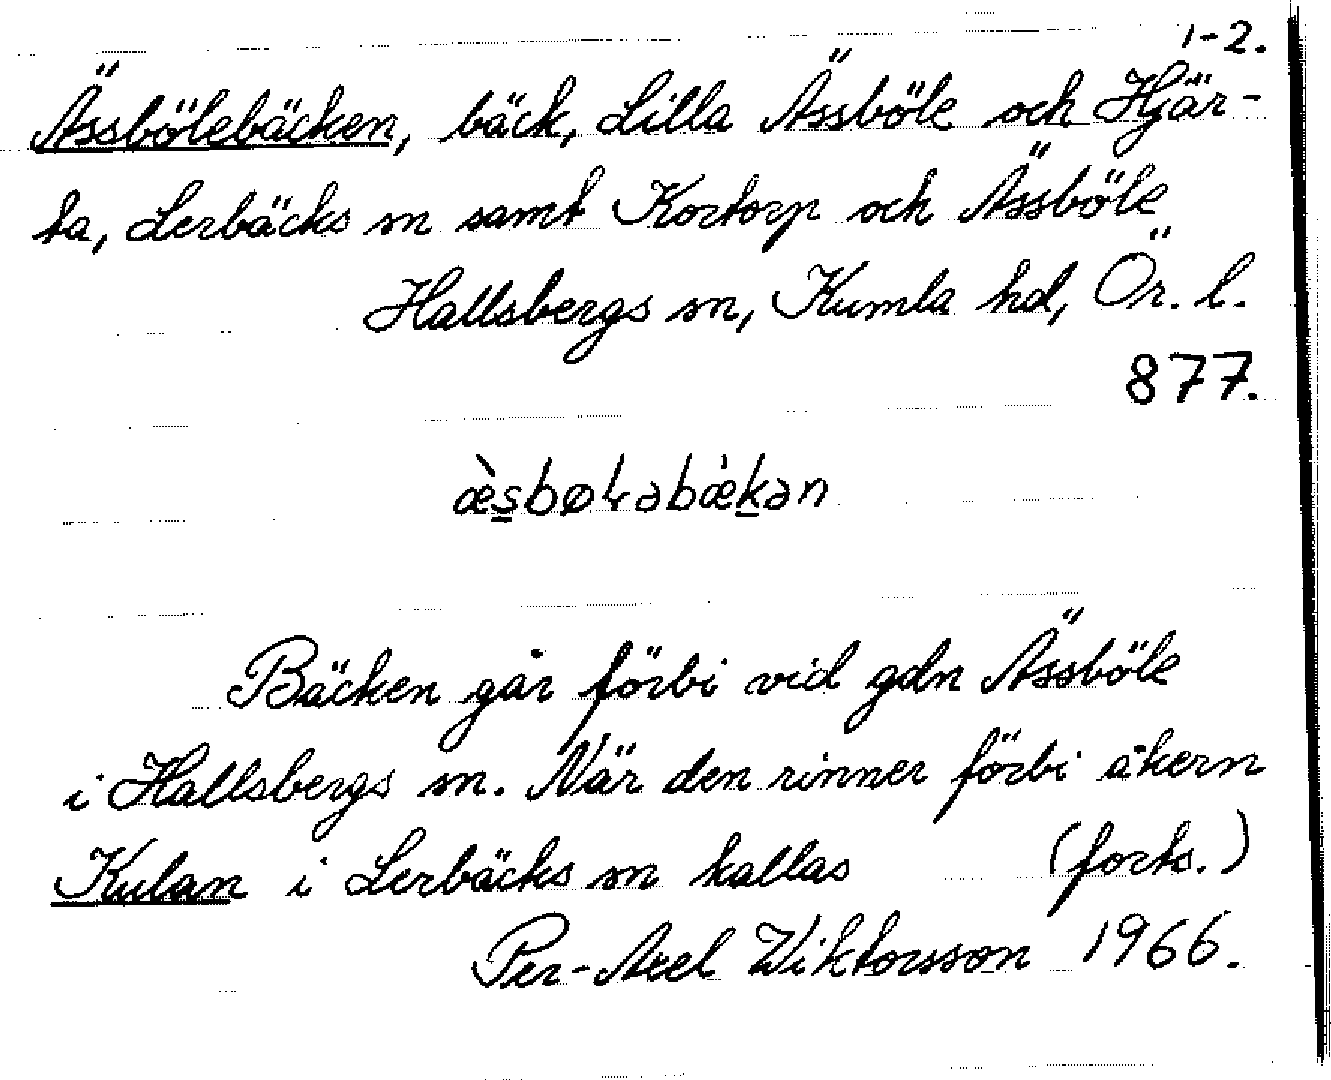 1-2.
Ässbölebäcken, bäck, Lilla Ässböle och Hjär-
ta, Lerbäcks sn samt Kortorp och Ässböle
Hallsbergs sn, Kumla hd, Ör. l.
877.
æ̀s̲bøɬəbæ̀k̲ən
Bäcken går förbi vid gdn Ässböle
i Hallsbergs sn. När den rinner förbi åkern
Kulan i Lerbäcks sn kallas (forts.)
Per-Axel Wiktorsson 1966.